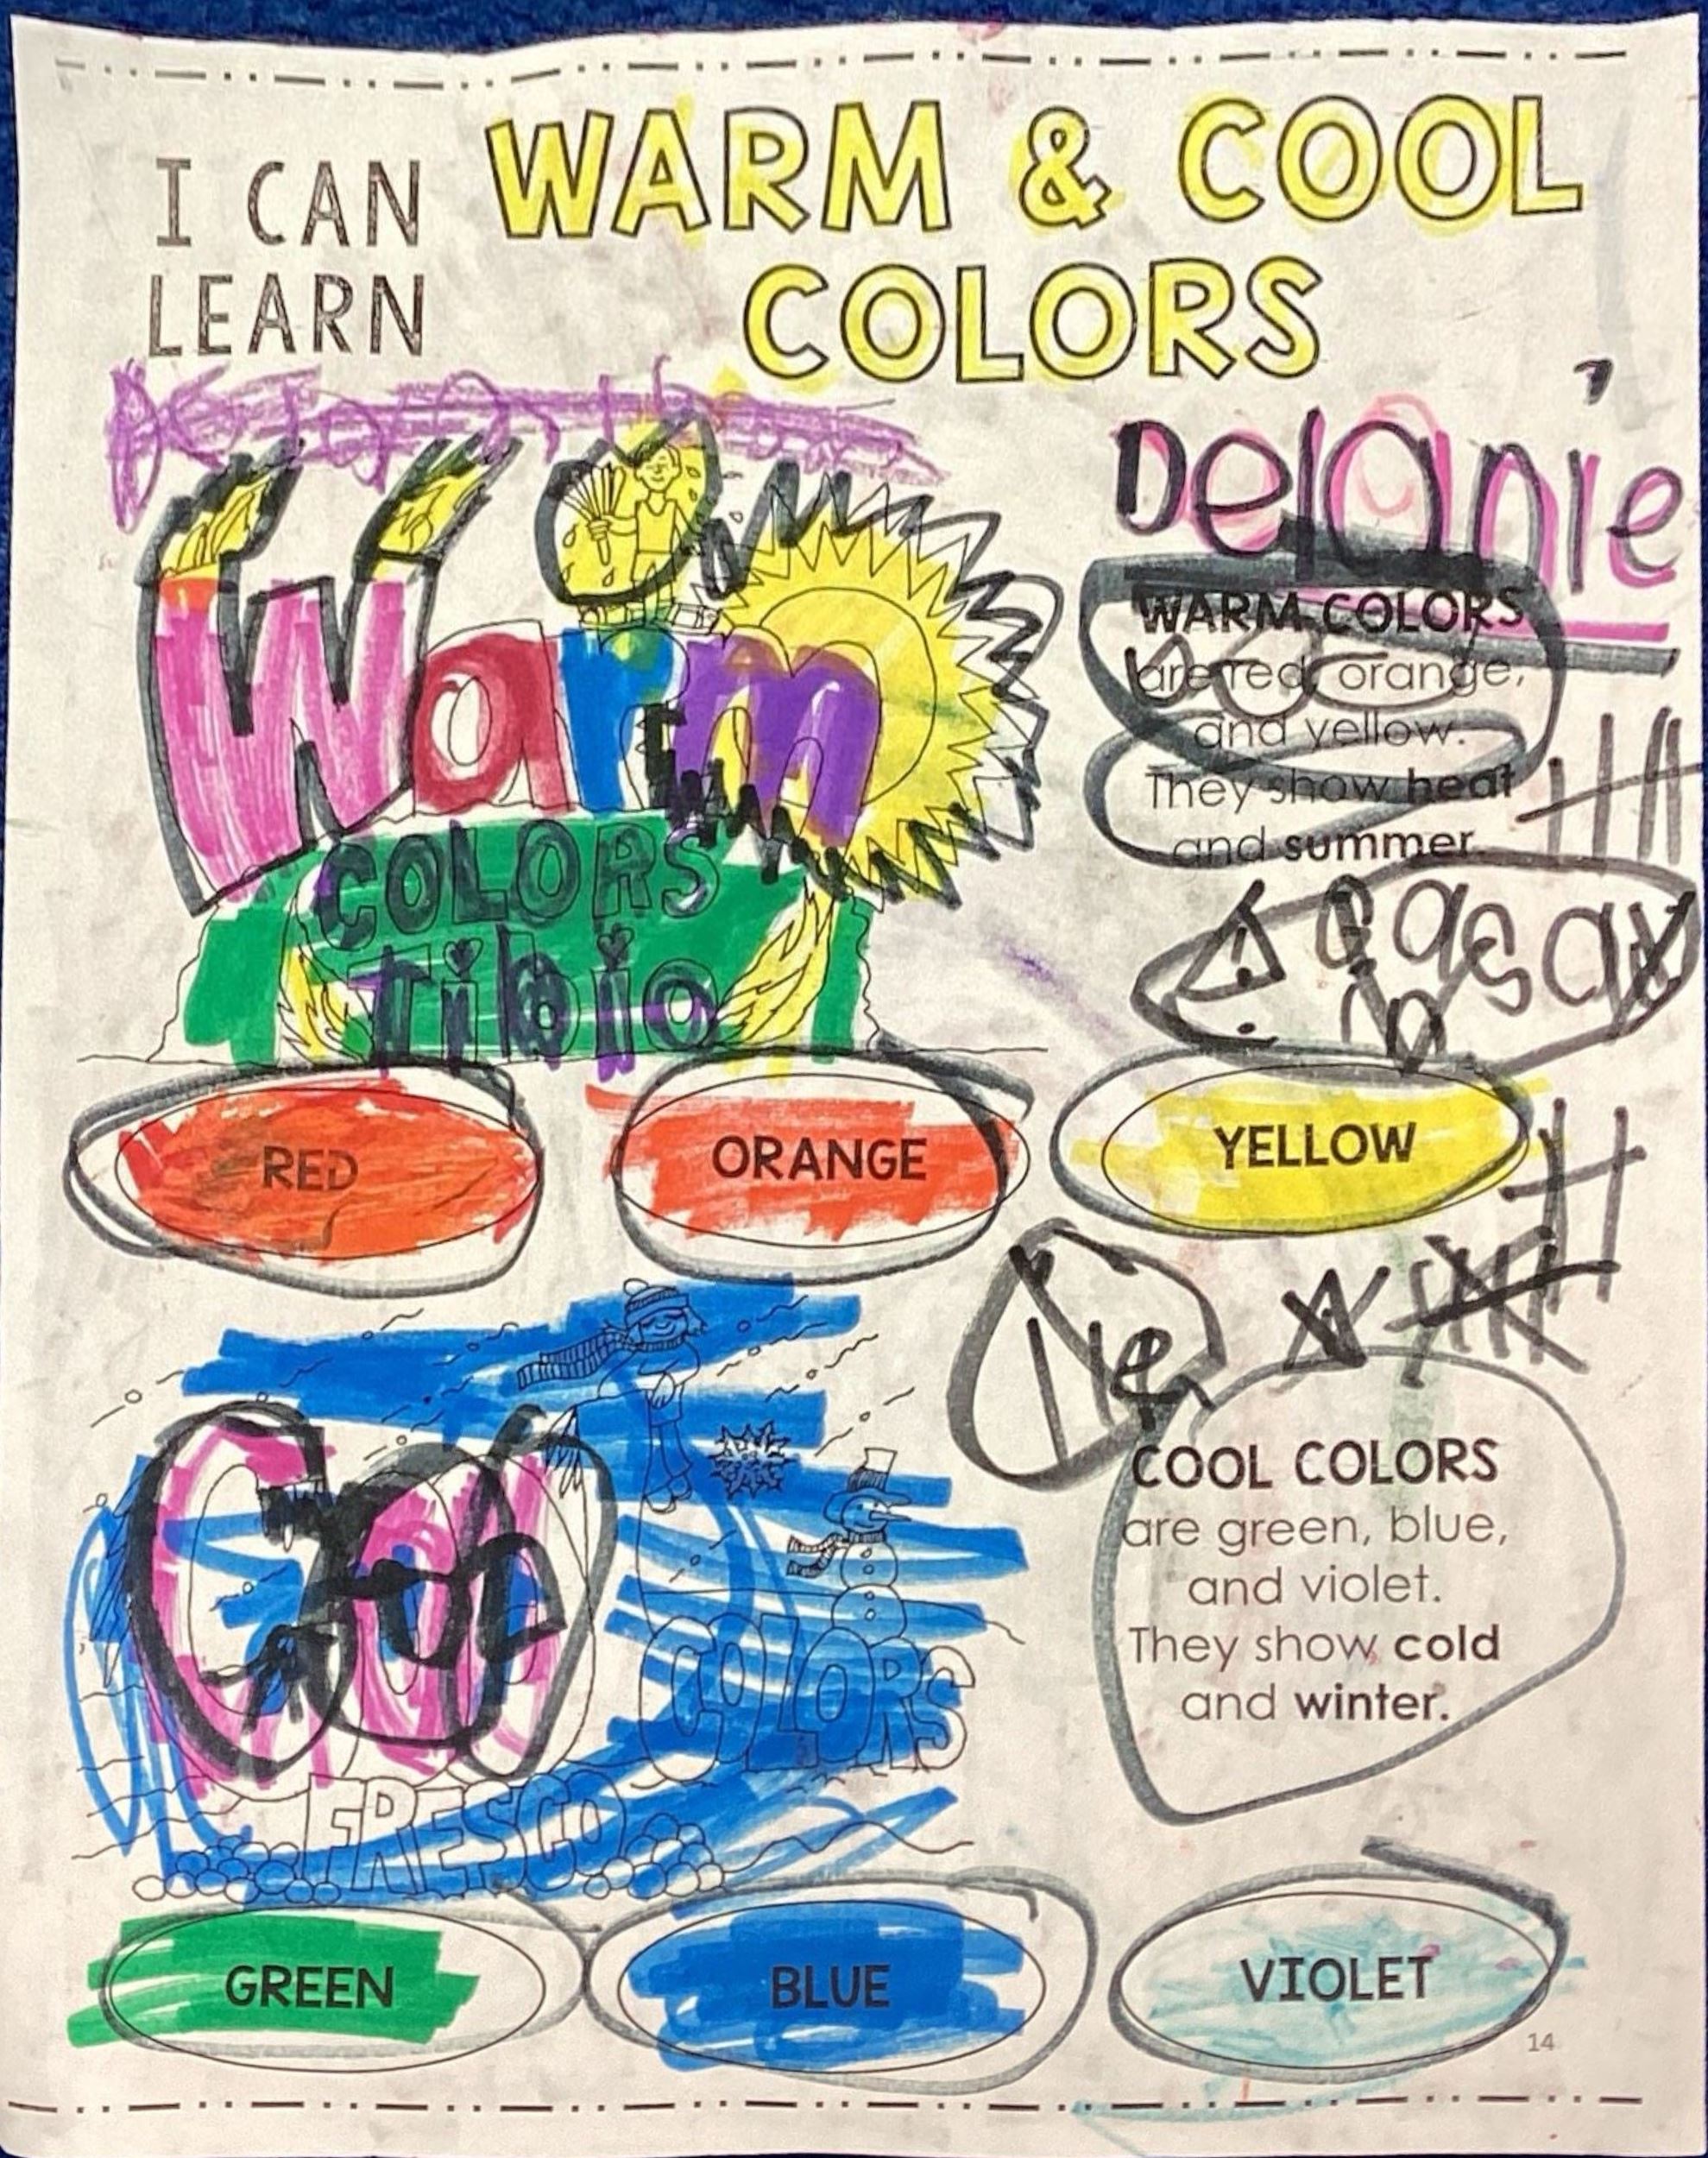 I CAN
LEARN
WARM & COOL
COLORS
Delanie
Warm
COLORS
Tibio
WARM COLORS
are red, orange,
and yellow.
They show heat
and summer.
RED
ORANGE
YELLOW
Cool
COLORS
FRESCO
COOL COLORS
are green, blue,
and violet.
They show cold
and winter.
GREEN
BLUE
VIOLET
14